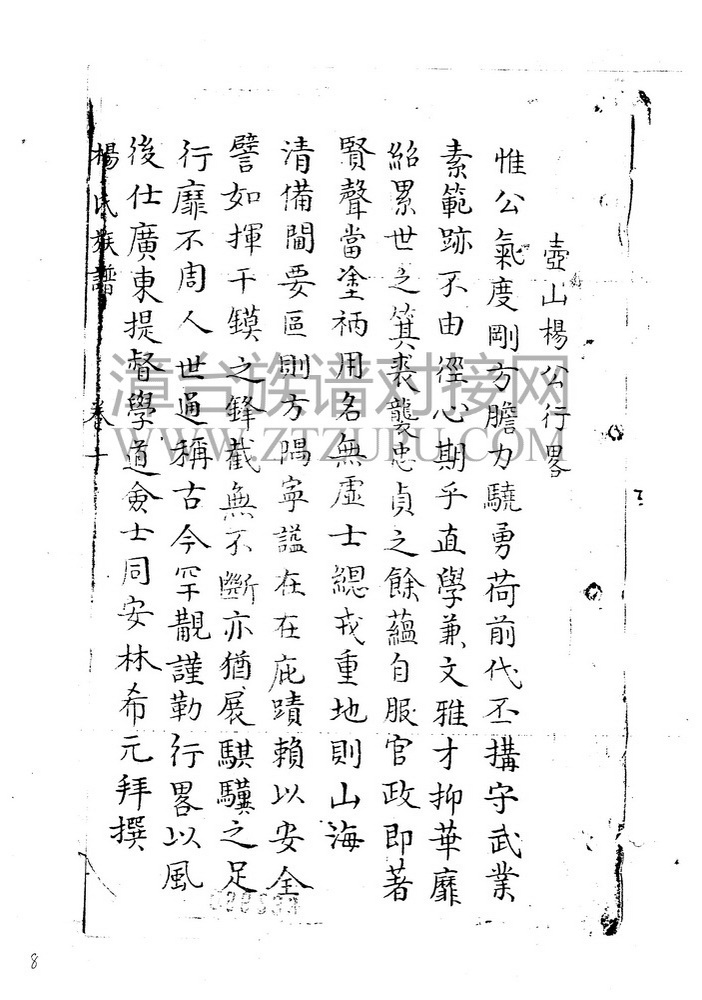 壺山楊公行畧
惟公氣度剛方膽力驍勇荷前代丕搆守武業
素範跡不由徑心期乎直學兼文雅才抑華靡
紹累世之箕裘襲忠貞之餘蘊自服官政即著
賢聲當塗柄用名無虛士總戎重地則山海
清備閫要區則方隅寧謐在在庇蹟賴以安全
譬如揮干鏌之鋒截無不斷亦猶展騏驥之足
行靡不周人世通稱古今罕覯謹勒行畧以風
後仕廣東提督學道僉士同安林希元拜撰
楊氏族譜 卷一
漳台族谱对接网
WWW.ZTZUPU.COM
8